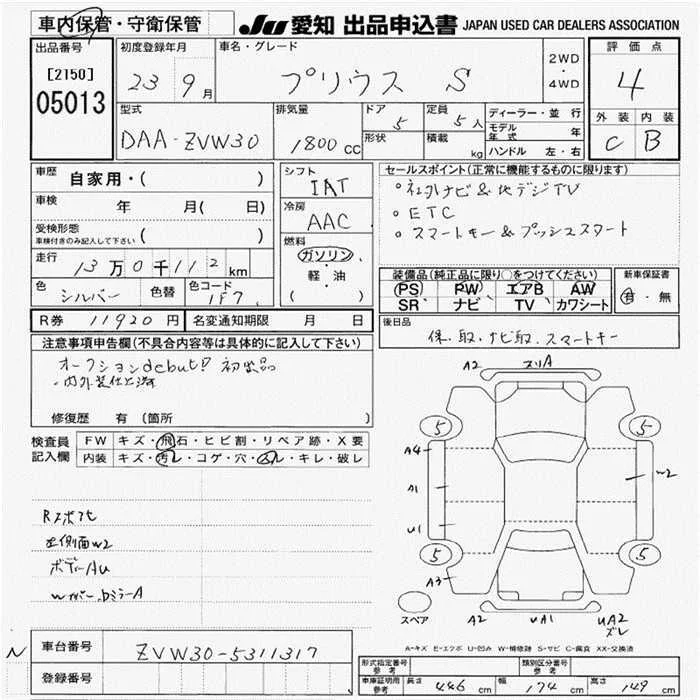 車内保管・守衛保管
JU 愛知 出品申込書 JAPAN USED CAR DEALERS ASSOCIATION
出品番号
[2150]
05013
初度登録年月
23 9月
車名・グレード
プリウス S
2WD
・
4WD
評価点
4
外装 内装
C B
型式
DAA-ZVW30
排気量
1800cc
ドア
5
形状
定員
5人
積載
kg
ディーラー・並行
モデル年式 年
ハンドル 左・右
車歴
自家用・( )
車検 年 月( 日)
受検形態
車検付きのみ記入して下さい ( )
走行
13万0千112km
色
シルバー
色替
色コード
1F7
シフト
IAT
冷房
AAC
燃料
ガソリン
・
軽・油
( )
セールスポイント(正常に機能するものに限ります)
○社外ナビ&地デジTV
○ETC
○スマートキー&プッシュスタート
装備品(純正品に限り○をつけてください)
PS PW エアB AW
SR ナビ TV カワシート
新車保証書
有・無
R券 11920円 名変通知期限 月 日
後日品
保.取.ナビ取.スマートキー
注意事項申告欄(不具合内容等は具体的に記入して下さい)
オークションdebut!! 初出品
・内外装仕上済
修復歴 有(箇所 )
検査員
記入欄
FW キズ・飛石・ヒビ割・リペア跡・X要
内装 キズ・汚レ・コゲ・穴・スレ・キレ・破レ
Rスポ凹
左側面W2
ボディーAU
A2 スリA
5 5
A4
A1
U1
W2
5 5
A3
スペア
A2 UA1 UA2
ズレ
A-キズ E-エクボ U-凹み W-補修跡 S-サビ C-腐食 XX-交換済
N
車台番号 ZVW30-5311317
登録番号
形式指定番号
参考
類別区分番号
参考
車庫証明用
参考
長さ 446cm 幅 174cm 高さ 149cm